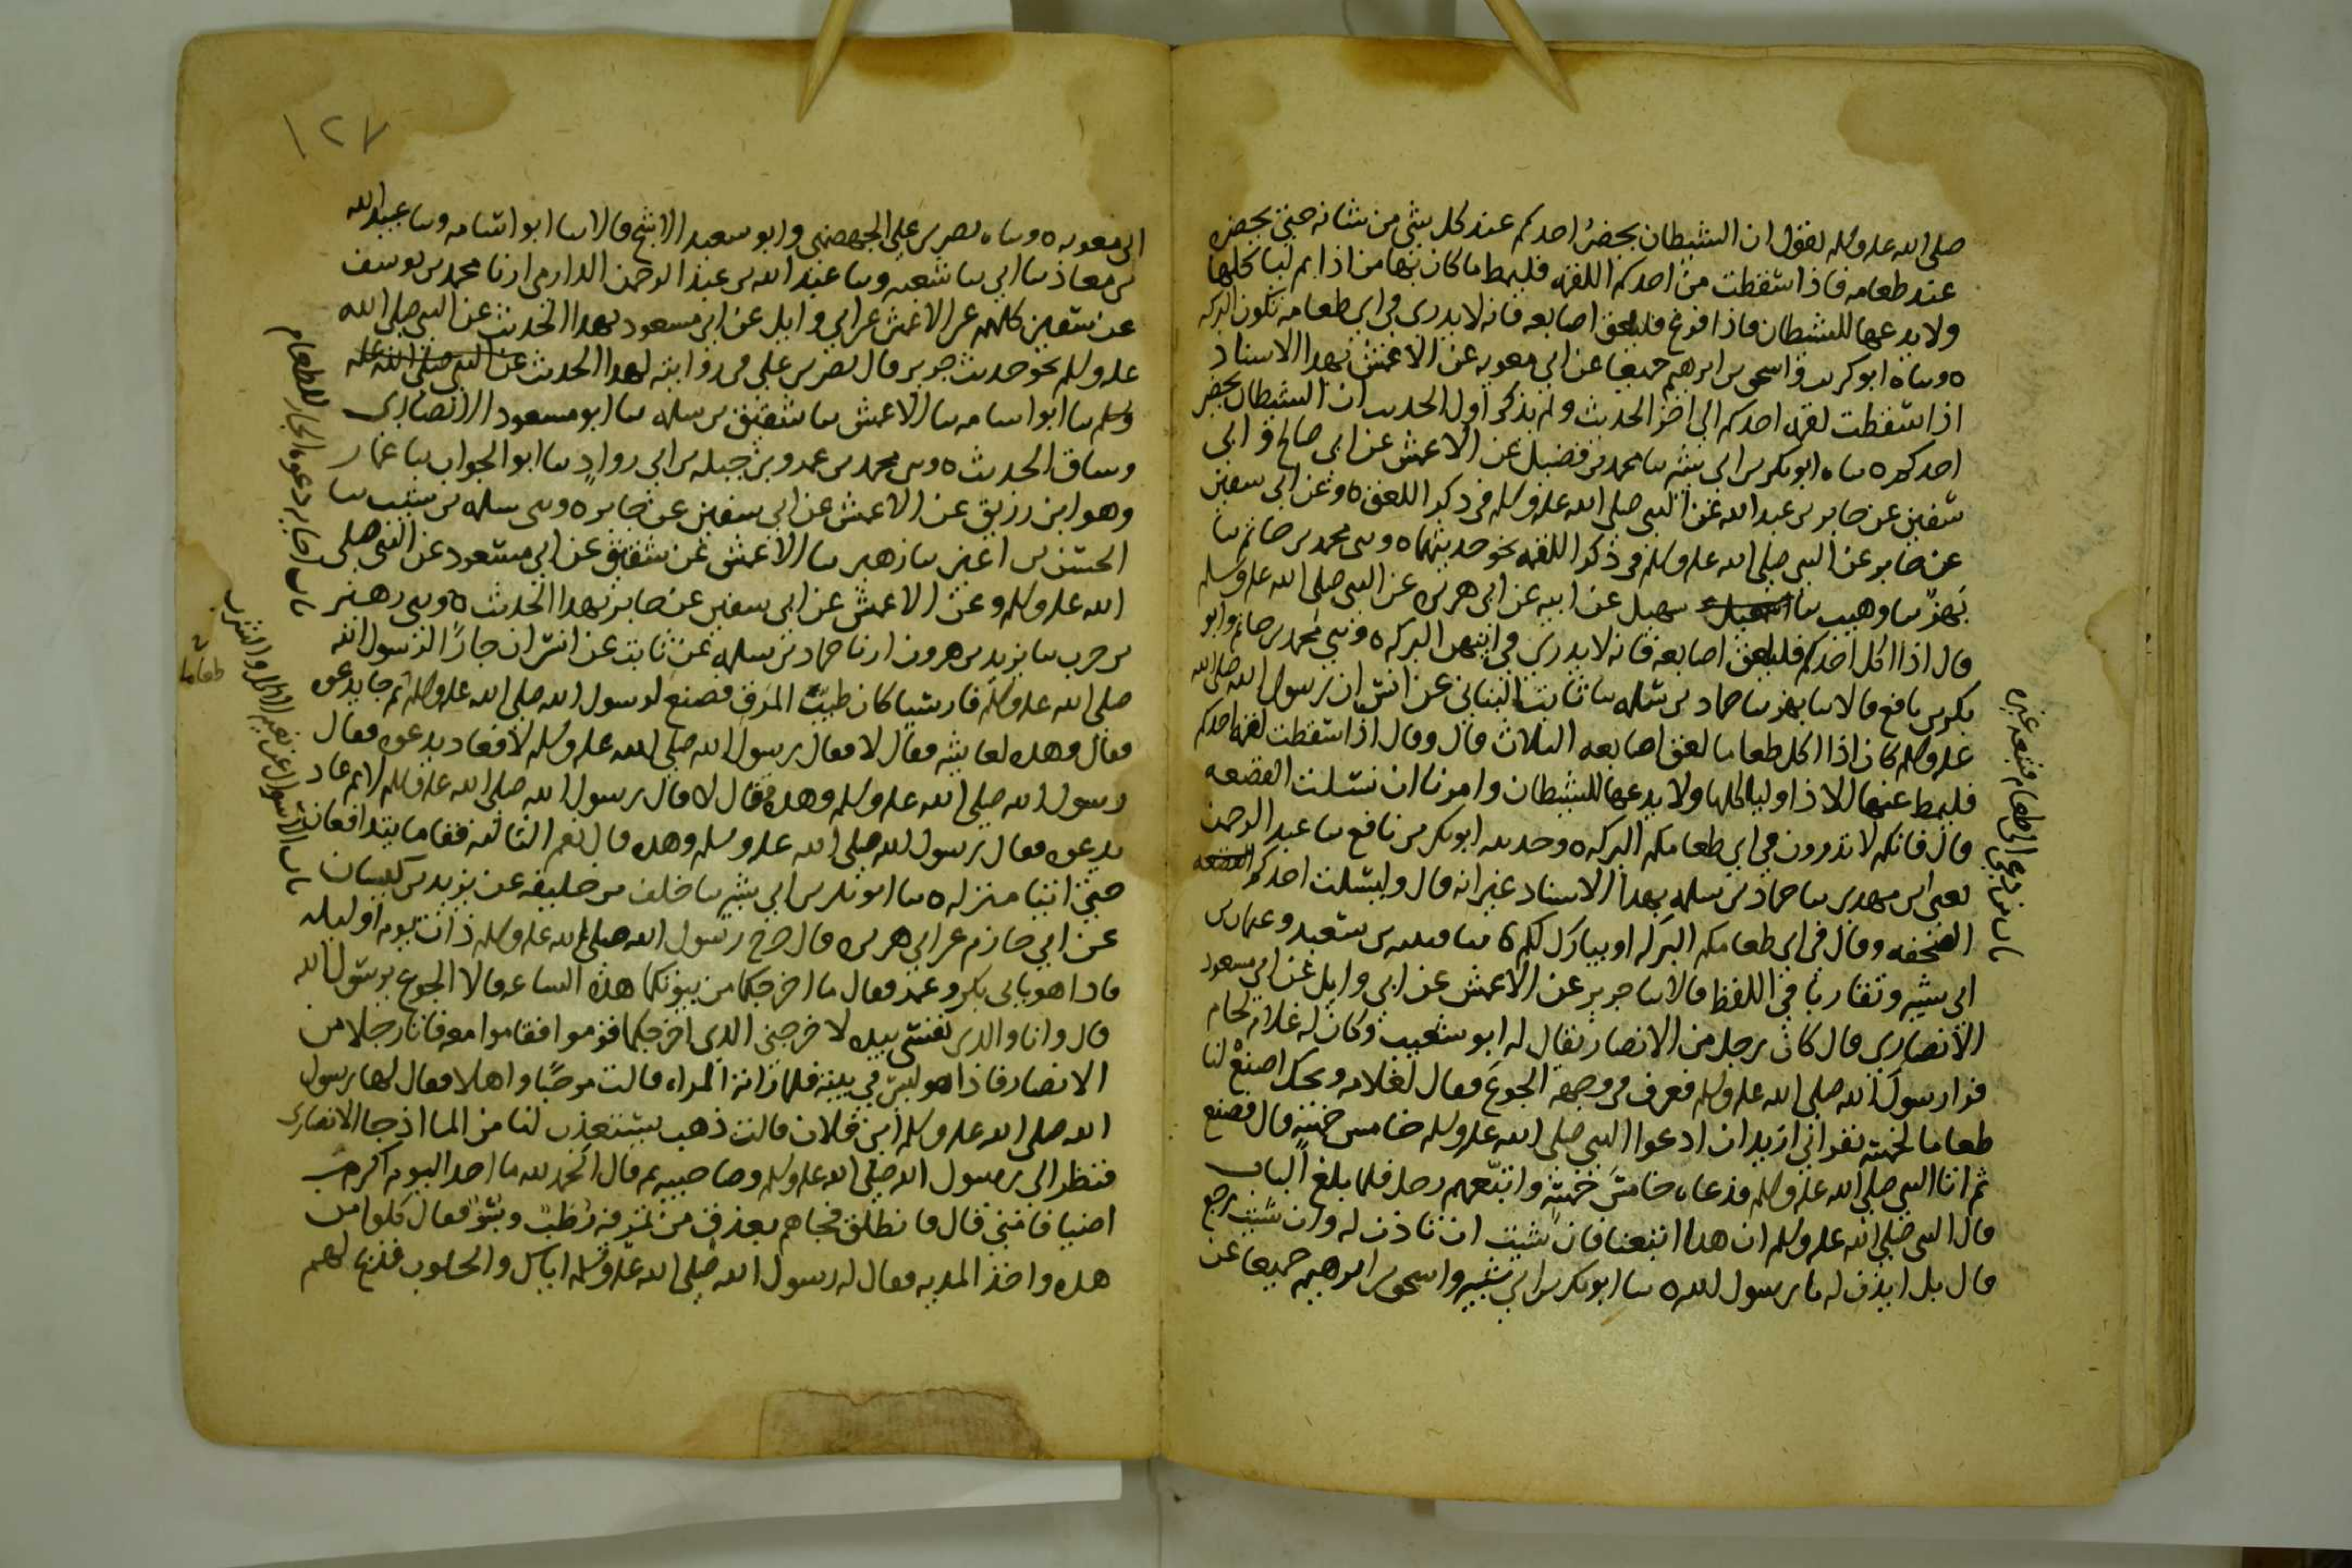 صلى الله علىه وسلم يقول ان الشيطان يحضرُ احدكم عند كل شي من شانه حتى يحضره
عند طعامه فاذا سقطت من احدكم اللقمه فليمط ما كان بها من اذا ثم ليا كلها
ولا يدعها للشيطان فاذا فرغ فليلعق اصابعه فانه لا يدرى في اى طعامه تكون البركه
ه وسا ه ابو كريب واسحق بن ابرهيم جميعا عن ابى معويه عن الاعمش بهدا الاسناد
اذا سقطت لقمه احدكم الى اخر الحديث ولم يذكر اول الحديث ان الشيطان يحضر
احدكم ه سا ه ابو بكر بن ابى شيبه سا محمد بن فضيل عن الاعمش عن ابى صالح وابى
سفين عن جابر بن عبد الله عن النبى صلى الله عله وسلم في ذكر اللعق ه وعن ابى سفين
عن جابر عن النبى صلى الله عله وسلم في ذكر اللقمه نحو حديثهما ه وسى محمد بن حاتم سا
بهز سا وهيب سا سهيل عن ابيه عن ابى هريره عن النبى صلى الله عله وسلم
قال اذا اكل احدكم فليلعق اصابعه فانه لا يدرى في ايتهن البركه ه وسى محمد بن حاتم وابو
بكر بن نافع قالا سا بهز سا حماد بن سلمه سا ثابت البنانى عن انس ان رسول الله صلى الله
عله وسلم كان اذا اكل طعاما لعق اصابعه الثلاث قال وقال اذا سقطت لقمه احدكم
فليمط عنها الاذا وليا كلها ولا يدعها للشيطان وامرنا ان نسلت القصعه
قال فانكم لا تدرون في اى طعامكم البركه ه وحدىىه ابو بكر بن نافع سا عبد الرحمن
يعنى ابن مهدى سا حماد بن سلمه بهدا الاسناد غير انه قال وليسلت احدكم
الصحفه وقال في اى طعامكم البركه او يبارك لكم ه سا قتيبه بن سعيد وعثمان بن
ابى شيبه وتقاربا في اللفظ قالا سا جرير عن الاعمش عن ابى وايل عن ابى مسعود
الانصارى قال كان رجل من الانصار يقال له ابو شعيب وكان له غلام لحام
فرا رسول الله صلى الله عله وسلم فعرف في وجهه الجوع فقال لغلامه ويحك اصنع لنا
طعاما لخمسه نفر انى اريد ان ادعوا النبى صلى الله عله وسلم خامس خمسه قال فصنع
ثم اتا النبى صلى الله عله وسلم فدعاه خامس خمسه واتبعهم رجل فلما بلغ الباب
قال النبى صلى الله عله وسلم ان هدا اتبعنا فان شيت ان تاذن له وان شيت رجع
قال بل ايذن له يا رسول الله ه سا ابو بكر بن ابى شيبه واسحق بن ابرهيم جميعا عن
باب من دعى الى طعام فتبعه غيره
١٢٧
ابى معويه ه وسا ه نصر بن على الجهضمى وابو سعيد الاشج قالا سا ابو اسامه وسا عبيد الله
بن معاذ سا ابى سا شعبه وسا عبد الله بن عبد الرحمن الدارمى ارنا محمد بن يوسف
عن سفين كلهم عن الاعمش عن ابى وايل عن ابى مسعود بهدا الحديث عن النبى صلى الله
عله وسلم نحو حديث جرير قال نصر بن على في روايته لهدا الحديث عن النبى صلى الله عله
وسلم سا ابو اسامه سا الاعمش سا شقيق بن سلمه سا ابو مسعود الانصارى
وساق الحديث ه وسى محمد بن عمرو بن جبله بن ابى رواد سا ابو الجواب سا عمار
وهو ابن رزيق عن الاعمش عن ابى سفين عن جابر ه وسى سلمه بن شبيب سا
الحسن بن اعين سا زهير سا الاعمش عن شقيق عن ابى مسعود عن النبى صلى
الله عله وسلم وعن الاعمش عن ابى سفين عن جابر بهدا الحديث ه وسى زهير
بن حرب سا يزيد بن هرون ارنا حماد بن سلمه عن ثابت عن انس ان جارًا لرسول الله
صلى الله عله وسلم فارسيا كان طيّب المرق فصنع لرسول الله صلى الله عله وسلم ثم جا يدعوه
فقال وهده لعايشه فقال لا فقال رسول الله صلى الله عله وسلم لا فعاد يدعوه فقال
رسول الله صلى الله عله وسلم وهده قال لا قال رسول الله صلى الله عله وسلم لا ثم عاد
يدعوه فقال رسول الله صلى الله عله وسلم وهده قال نعم الثالثه فقاما يتدافعان
حتى اتيا منزله ه سا ابو بكر بن ابى شيبه سا خلف بن خليفه عن يزيد بن كيسان
عن ابى حازم عن ابى هريره قال خرج رسول الله صلى الله عله وسلم ذات يوم او ليله
فاذا هو بابى بكر وعمر فقال ما اخرجكما من بيوتكما هذه الساعه قالا الجوع يا رسول الله
قال وانا والدى نفسى بيده لاخرجنى الدى اخرجكما قوموا فقاموا معه فاتا رجلا من
الانصار فاذا هو ليس في بيته فلما راته المراه قالت مرحبًا واهلا فقال لها رسول
الله صلى الله عله وسلم اين فلان قالت ذهب يستعذب لنا من الما اذ جا الانصارى
فنظر الى رسول الله صلى الله عله وسلم وصاحبيه ثم قال الحمد لله ما احد اليوم اكرم
اضيافا منى قال فانطلق فجاهم بعذق من تمر فيه رطب وبسر فقال كلوا من
هده واخذ المديه فقال له رسول الله صلى الله عله وسلم اياك والحلوب فذبح لهم
باب اجابه دعوه الجار للطعام
باب السوال عن نعيم الاكل والشرب
طعاما